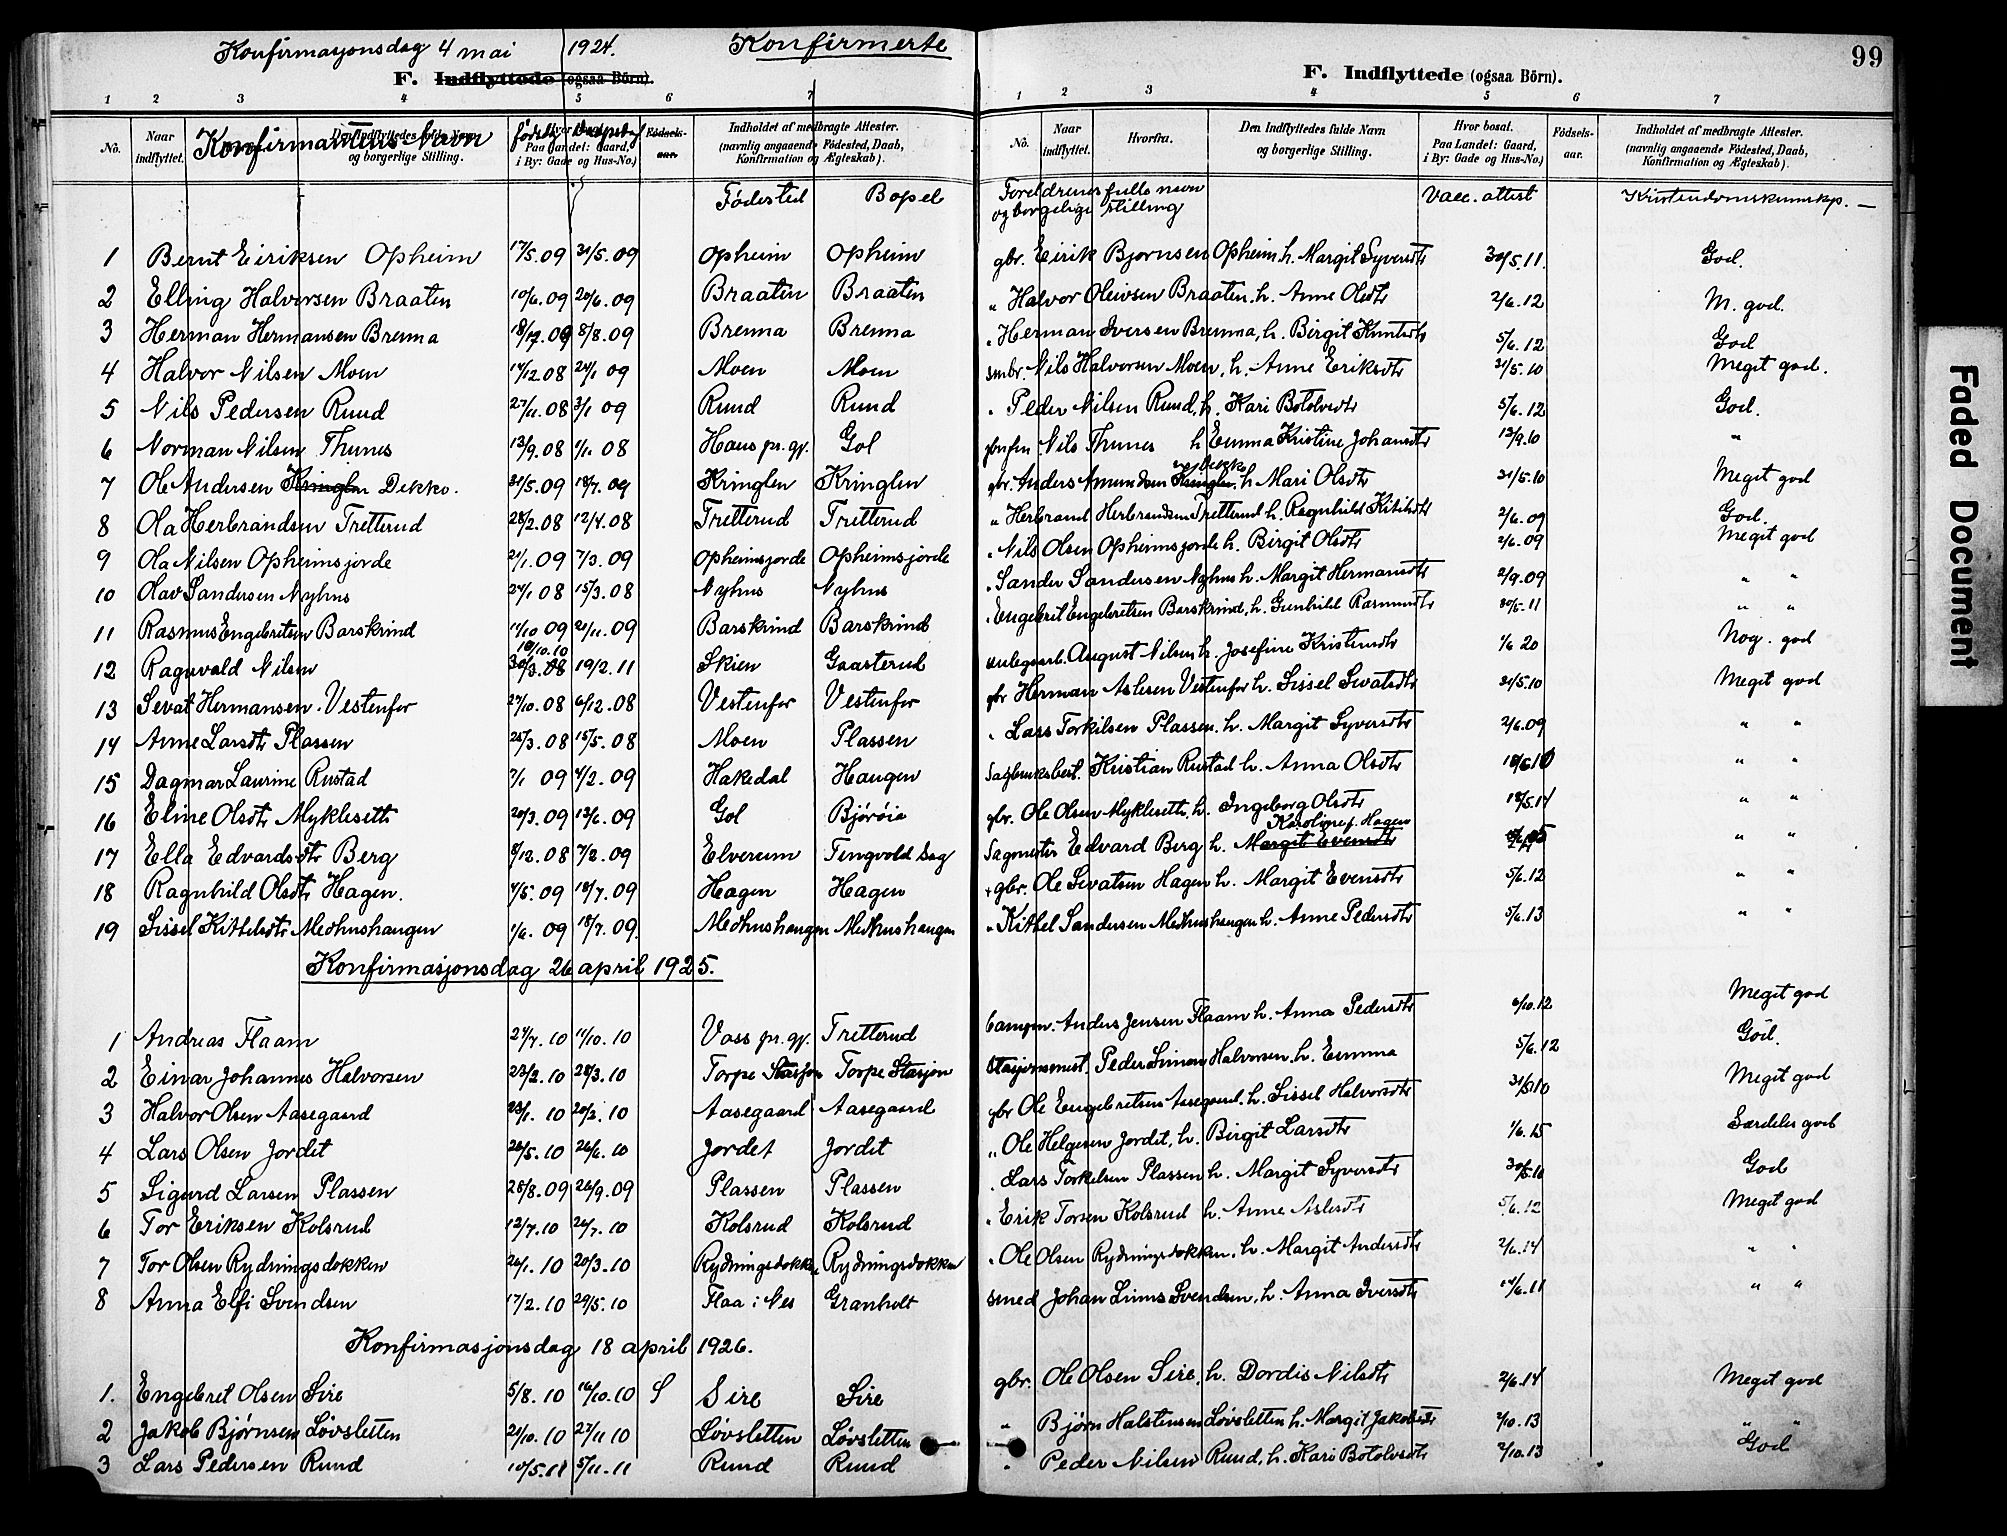 Konfirmasjonsdag 4 mai 1924. Konfirmerte
F. Indflyttede (ogsaa Börn).
1 2 3 4 5 6 7
No. Naar indflyttet. Konfirmantens Navn Den Indflyttedes fulde Navn og borgerlige Stilling. født Daapsdag Paa Landet: Gaard, i By: Gade og Hus-No.) Fødsels-aar. Indholdet af medbragte Attester. (navnlig angaaende Födested, Daab, Konfirmation og Ægteskab).
Fødested Bopel
1 Bernt Eiriksen Opheim 17/5.09 31/5.09 Opheim Opheim
2 Elling Halvorsen Braaten 10/6.09 20/6.09 Braaten Braaten
3 Herman Hermansen Brenna 18/7.09 8/8.09 Brenna Brenna
4 Halvor Nilsen Moen 14/12.08 24/1 09 Moen Moen
5 Nils Pedersen Ruud 27/11.08 3/1 09 Ruud Ruud
6 Norman Nilsen Thunes 13/9.08 1/11 08 Haus pr.gj. Gol
7 Ole Andersen Kringlen Dekko. 31/5.09 18/7.09 Kringlen Kringlen
8 Ola Herbrandsen Tretterud 28/2.08 12/4.08 Tretterud Tretterud
9 Ola Nilsen Opheimsjorde 21/1.09 7/3.09 Opheimsjorde Opheimsjorde
10 Olav Sandersen Nyhus 24/1 08 15/3.08 Nyhus Nyhus
11 Rasmus Engebretsen Barskrind 14/10 09 21/11.09 Barskrind Barskrind
12 Ragnvald Nilsen 18/10.10 30/3.08 19/2.11 Skien Gaasterud
13 Sevat Hermansen Vestenfor 27/10.08 6/12.08 Vestenfor Vestenfor
14 Anne Larsdtr Plassen 25/3.08 15/5.08 Moen Plassen
15 Dagmar Laurine Rustad 7/1 09 4/2.09 Hakedal Haugen
16 Eline Olsdtr Myklesett 20/3.09 13/6.09 Gol Bjørøia
17 Ella Edvardsdtr Berg 8/12.08 7/2.09 Elverum Tengvold Sag
18 Ragnhild Olsdtr Hagen. 4/5.09 18/7.09 Hagen Hagen
19 Sissel Kittelsdtr Medhushaugen 1/6.09 18/7.09. Medhushaugen Medhushaugen
Konfirmasjonsdag 26 april 1925.
1 Andreas Flaam 27/7.10 11/10.10 Voss pr.gj. Tretterud
2 Einar Johannes Halvorsen 22/2.10 28/3.10 Torpe Stasjon Torpe Stasjon
3 Halvor Olsen Aasegaard 23/1.10 20/2.10 Aasegaard Aasegaard
4 Lars Olsen Jordet 20/5.10 26/6.10 Jordet Jordet
5 Sigurd Larsen Plassen 28/8.09 26/9.09 Plassen Plassen
6 Tor Eriksen Kolsrud 12/7.10 24/7.10 Kolsrud Kolsrud
7 Tor Olsen Rydningsdokken 26/1.10 20/3.10 Rydningsdokken Rydningsdokken
8 Anna Elfi Svendsen 17/2.10 29/5.10 Flaa i Nes Granholt
Konfirmasjonsdag 18 april 1926.
1. Engebret Olsen Sire 5/8.10 16/10.10 S Sire Sire
2 Jakob Bjørnsen Løvsletten 21/10.10 27/11 10 Løvsletten Løvsletten
3 Lars Pedersen Ruud 10/5.11 5/11.11 Ruud Ruud
99
F. Indflyttede (ogsaa Börn).
1 2 3 4 5 6 7
No. Naar indflyttet. Hvorfra. Den Indflyttedes fulde Navn og borgerlige Stilling. Hvor bosat. Paa Landet: Gaard, i By: Gade og Hus-No.) Födsels-aar. Indholdet af medbragte Attester. (navnlig angaaende Födested, Daab, Konfirmation og Ægteskab).
Foreldrenes fulle navn og borgelige stilling Vacc. attest Kristendomskunnskp. —
gbr. Eirik Bjornsen Opheim h. Margit Syversdtr 30/5.11. God.
" Halvor Oleivsen Braaten. h. Anne Olsdtr 2/6.12 M. god.
" Herman Iversen Brenna, h. Birgit Knutsdtr 5/6.12 God
smbr. Nils Halvorsen Moen, h. Anne Eriksdtr 31/5.10 Meget god.
" Peder Nilsen Ruud, h. Kari Botolvsdtr 5/6.12 God.
Nils Thunes h Emma Kristine Johansdtr 13/9.10 "
gbr. Anders Amundsen Kringlen Dekko h Mari Olsdtr 31/5.10 Meget god
" Herbrand Herbrandsen Tretterud h. Ragnhild Kittilsdtr 2/6.09 God.
" Nils Olsen Opheimsjorde h. Birgit Olsdtr 2/6.09 Meget god
" Sander Sandersen Nyhus h. Margit Hermansdtr 2/9.09 " "
" Engebret Engebretsen Barskrind, h. Gunhild Rasmusdtr 30/5.11 " "
August Nilsen h. Josefine Kristensdtr 1/6 20 Nog. god
gbr Herman Aslesen Vestenfor h. Sissel Sevatsdtr 31/5.10 Meget god
" Lars Torkilsen Plassen. h. Margit Syversdtr 2/6.09 " "
Sagbruksbest. Kristian Rustad h. Anna Olsdtr " "
gbr. Ole Olsen Myklesett h. Ingeborg Olsdtr 18/5.14 " "
Karoline f. Hagen
Sagmester Edvard Berg h. Margit Evensdtr " "
+ gbr. Ole Sevatsen Hagen h. Margit Evensdtr 5/6.12 " "
" Kittel Sandersen Medhushaugen h. Anne Pedersdtr 5/6.13 " "
Anders Jensen Flaam h. Anna Pedersdtr 6/10.12 Meget god
Stasjonsmest. Peder Simon Halvorsen. h. Emma 5/6.12 God.
gbr Ole Engebretsen Aasegaard. h. Sissel Halvorsdtr 31/5.10 Meget god
" Ole Helgesen Jordet, h. Birgit Larsdtr 1/6.15 Særdeles god
" Lars Torkelsen Plassen h. Margit Syversdtr 30/5.10 God
" Erik Torsen Kolsrud h. Anne Aslesdtr 5/6.12 Meget god
" Ole Olsen Rydningsdokken, h. Margit Andersdtr 2/6.14 " "
smed Johan Linus Svendsen, h. Anna Iversdtr 14/6.11 " "
gbr. Ole Olsen Sire, h. Dordis Nilsdtr 2/6.14 Meget god
" Bjørn Halstensen Løvsletten h. Margit Jakobsdtr 2/10.13 " "
" Peder Nilsen Ruud, h. Kari Botolvsdtr 2/10.13 God
Faded Document